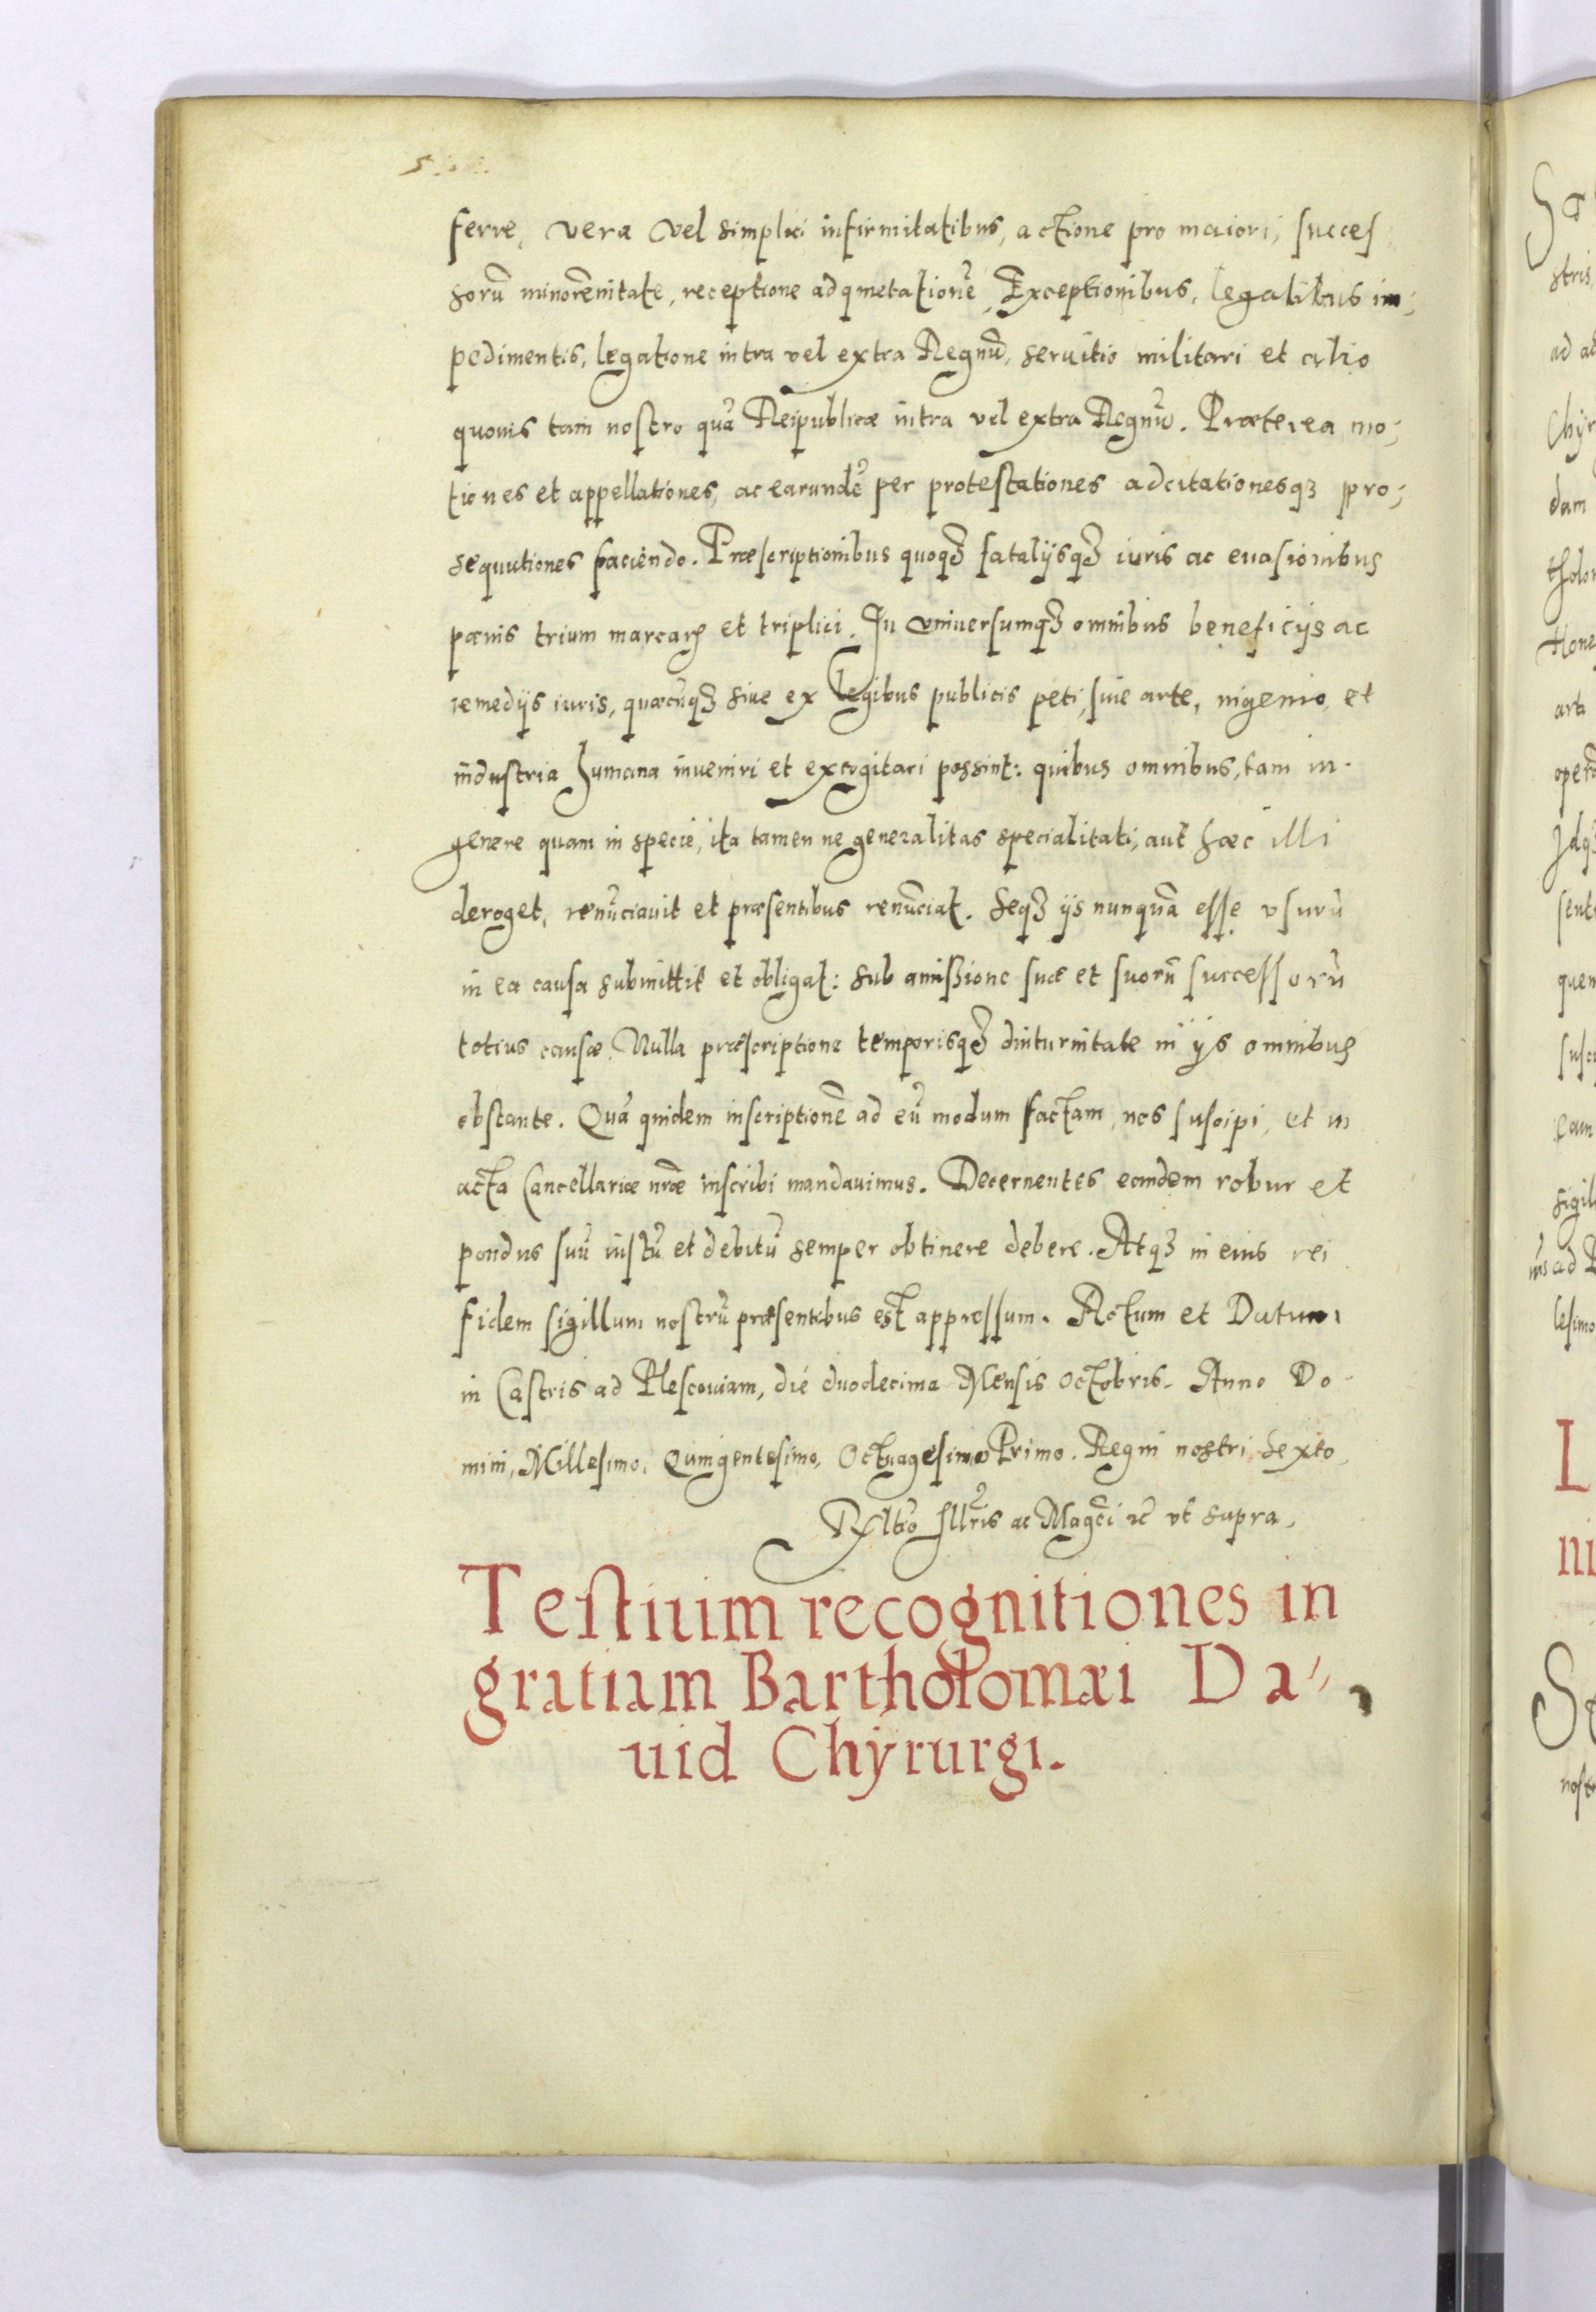 ferre, vera vel simplici infirmitatibus, actione pro maiori, succes
sorũ minorẽnitate, receptione ad qmetationẽ, Exceptionibus, legalibus im-
pedimentis, legatione intra vel extra Regnũ, seruitio militari et alio
quouis tam nostro quã Reipublicæ intra vel extra Regnũ. Præterea mo-
tiones et appellationes, ac earundẽ per protestationes adcitationesqꝫ pro-
sequutiones faciendo. Præscriptionibus quoqꝫ fatalijsqꝫ iuris ac euasionibus
pœnis trium marcarꝝ et triplici. In vniuersumqꝫ omnibus beneficijs ac
remedijs iuris, quæcũqꝫ siue ex legibus publicis peti, siue arte, ingenio, et
industria humana inueniri et excogitari possint: quibus omnibus, tam in
genere quam in specie, ita tamen ne generalitas specialitati, aut hæc illi
deroget, renũciauit et præsentibus renũciat. Seqꝫ ijs nunquã esse vsurũ
in ea causa submittit et obligat: sub amissione suæ et suorũ successorũ
totius causæ. Nulla præscriptione temporisqꝫ diuturnitate in ijs omnibus
obstante. Quã quidem inscriptionẽ ad eũ modum factam, nos suscipi, et in
acta Cancellariæ nr̃æ inscribi mandauimus. Decernentes eandem robur et
pondus suũ iustũ et debitũ semper obtinere debere. Atqꝫ in eius rei
fidem sigillum nostrũ præsentibus est appressum. Actum et Datum
in Castris ad Plescouiam, die duodecima Mensis Octobris. Anno Do-
mini, Millesimo, Quingentesimo, Octuagesimo Primo. Regni nostri, Sexto.
Rltio Illr̃is ac Magc̃i ꝛc vt supra.
Testium recognitiones in
gratiam Bartholomæi Da-
uid Chÿrurgi.